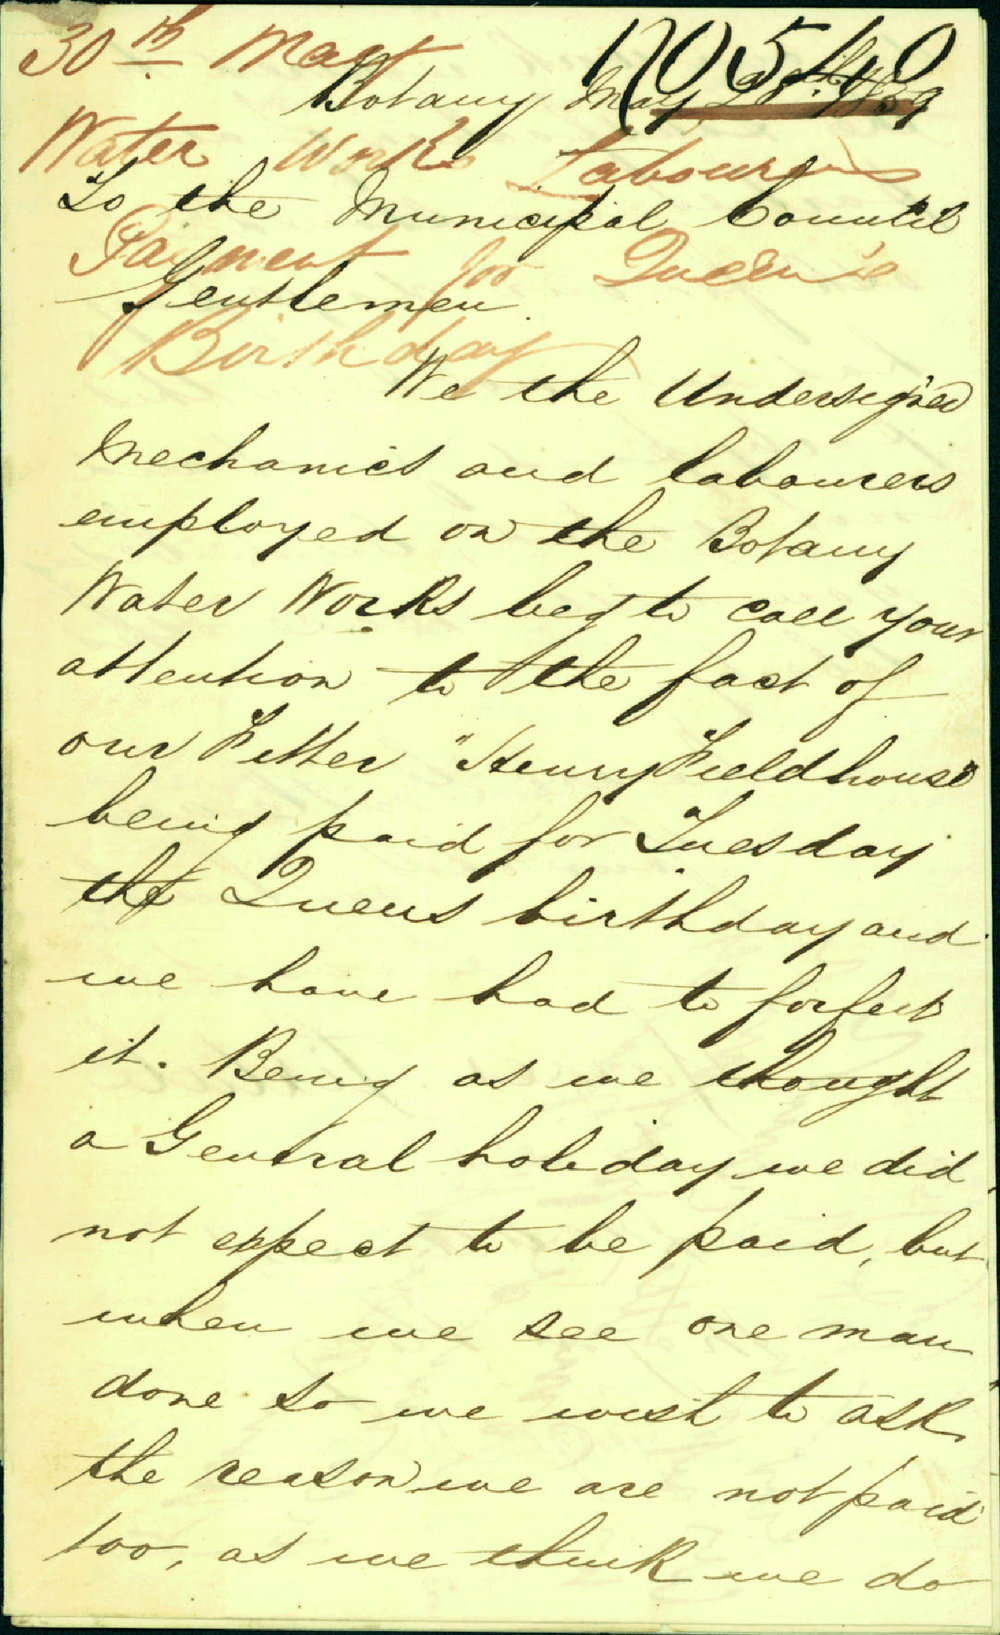 30th May
No 540
Botany May 28th 1859
Water Works Labourers
To the Municipal Council
Paiment for Queen's
Gentlemen.
Birthday
We the Undersigned
Mechanics and labourers
employed on the Botany
Water Works beg to call your
attention to the fact of
our Fitter "Henry Fieldhouse"
being paid for Tuesday
the Queens birthday and
we have had to forfeit
it. Being as we thought
a General holiday we did
not expect to be paid, but
when we see one man
done so we wish to ask
the reason we are not paid
too, as we think we do